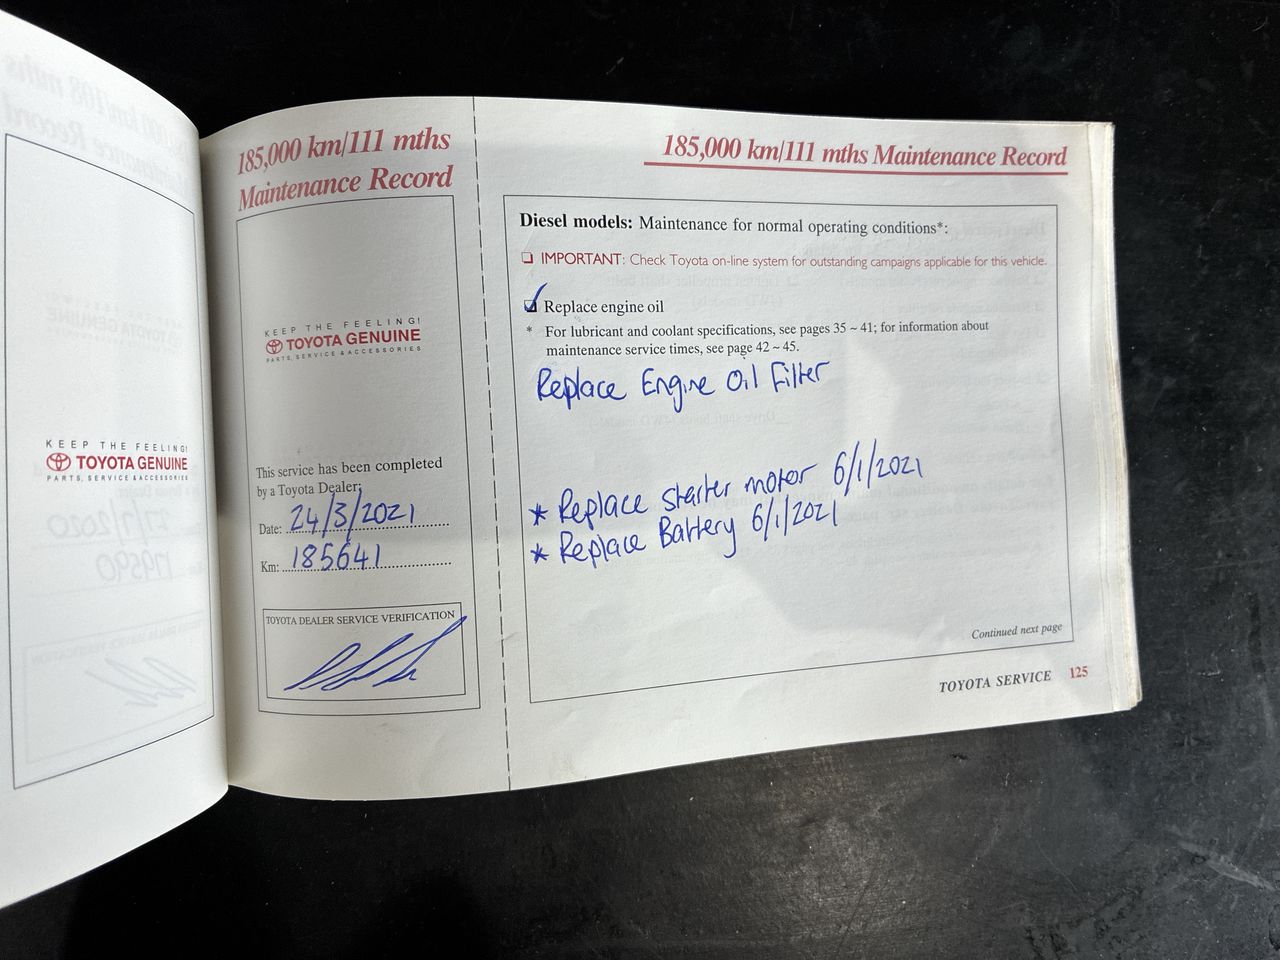 185,000 km/111 mths
Maintenance Record
KEEP THE FEELING!
TOYOTA GENUINE
PARTS, SERVICE & ACCESSORIES
This service has been completed
by a Toyota Dealer:
Date: 24/3/2021
Km: 185641
TOYOTA DEALER SERVICE VERIFICATION
185,000 km/111 mths Maintenance Record
Diesel models: Maintenance for normal operating conditions*:
IMPORTANT: Check Toyota on-line system for outstanding campaigns applicable for this vehicle.
Replace engine oil
* For lubricant and coolant specifications, see pages 35 ~ 41; for information about
maintenance service times, see page 42 ~ 45.
Replace Engine Oil Filter
* Replace starter motor 6/1/2021
* Replace Battery 6/1/2021
Continued next page
TOYOTA SERVICE 125
KEEP THE FEELING!
TOYOTA GENUINE
PARTS, SERVICE & ACCESSORIES